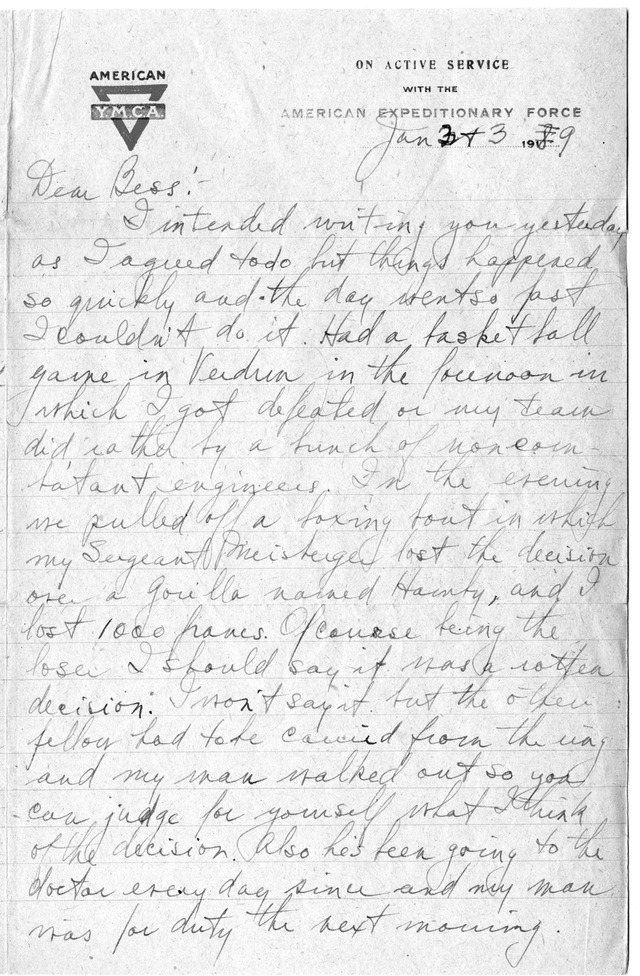 AMERICAN
Y.M.C.A.
ON ACTIVE SERVICE
WITH THE
AMERICAN EXPEDITIONARY FORCE
Jan 3 1919
Dear Bess:-
I intended writing you yesterday
as I agreed to do but things happened
so quickly and the day went so fast
I couldn't do it. Had a basket ball
game in Verdun in the forenoon in
which I got defeated or my team
did rather by a bunch of noncom-
batant engineers. In the evening
we pulled off a boxing bout in which
my Sergeant Meisberger lost the decision
over a Gorilla named Hamby, and I
lost 1000 francs. Of course being the
loser I should say it was a rotten
decision. I won't say it but the other
fellow had to be carried from the ring
and my man walked out so you
can judge for yourself what I think
of the decision. Also he's been going to the
doctor every day since and my man
was for duty the next morning.